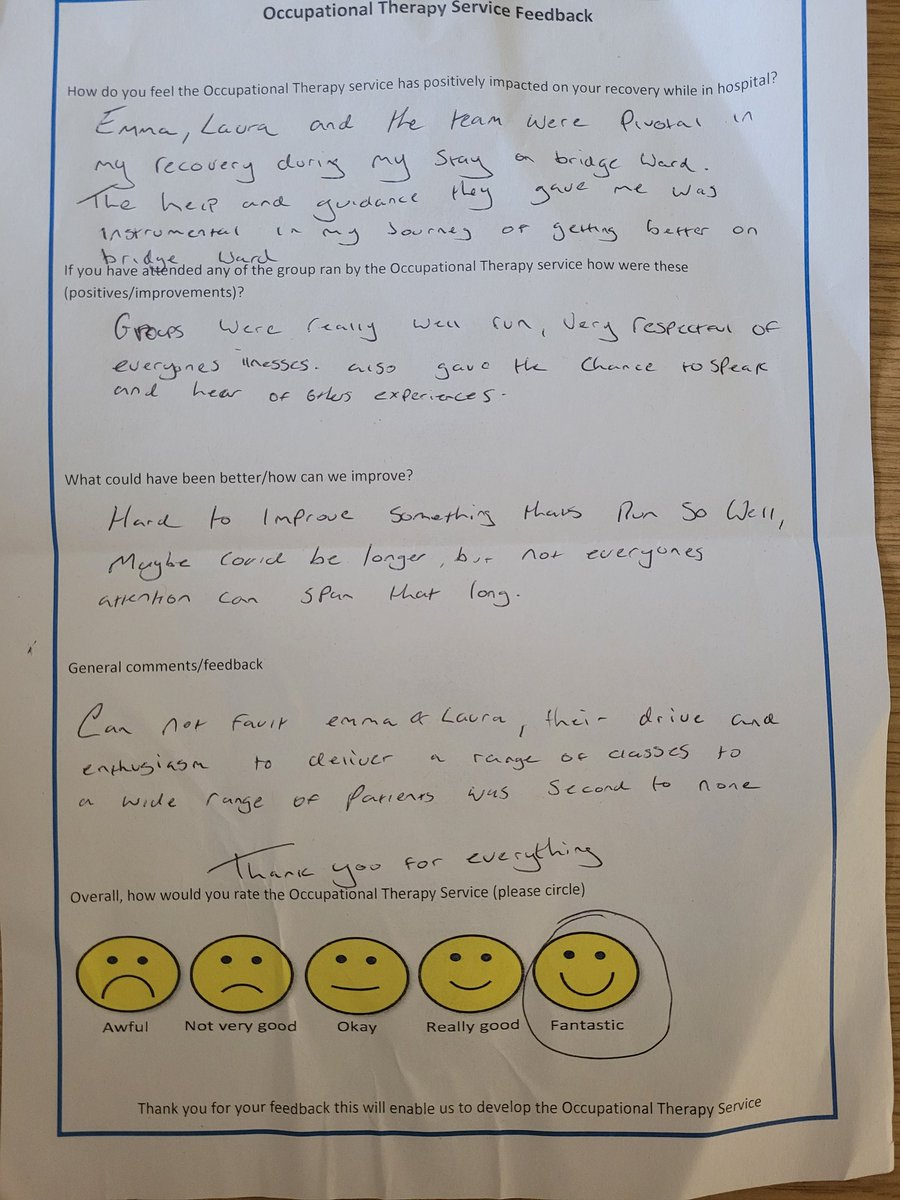 Occupational Therapy Service Feedback
How do you feel the Occupational Therapy service has positively impacted on your recovery while in hospital?
Emma, Laura and the team were Pivotal in
my recovery during my Stay on bridge Ward.
The help and guidance they gave me was
instrumental in my Journey of getting better on
bridge Ward
If you have attended any of the group ran by the Occupational Therapy service how were these
(positives/improvements)?
Groups were really well run, Very respectful of
everyones illnesses. also gave the Chance to speak
and hear of others experiences.
What could have been better/how can we improve?
Hard to Improve Something thats Run So Well,
Maybe could be longer, but not everyones
attention can span that long.
General comments/feedback
Can not fault emma & Laura, their drive and
enthusiasm to deliver a range of classes to
a wide range of Patients was Second to none
Thank you for everything
Overall, how would you rate the Occupational Therapy Service (please circle)
Awful Not very good Okay Really good Fantastic
Thank you for your feedback this will enable us to develop the Occupational Therapy Service